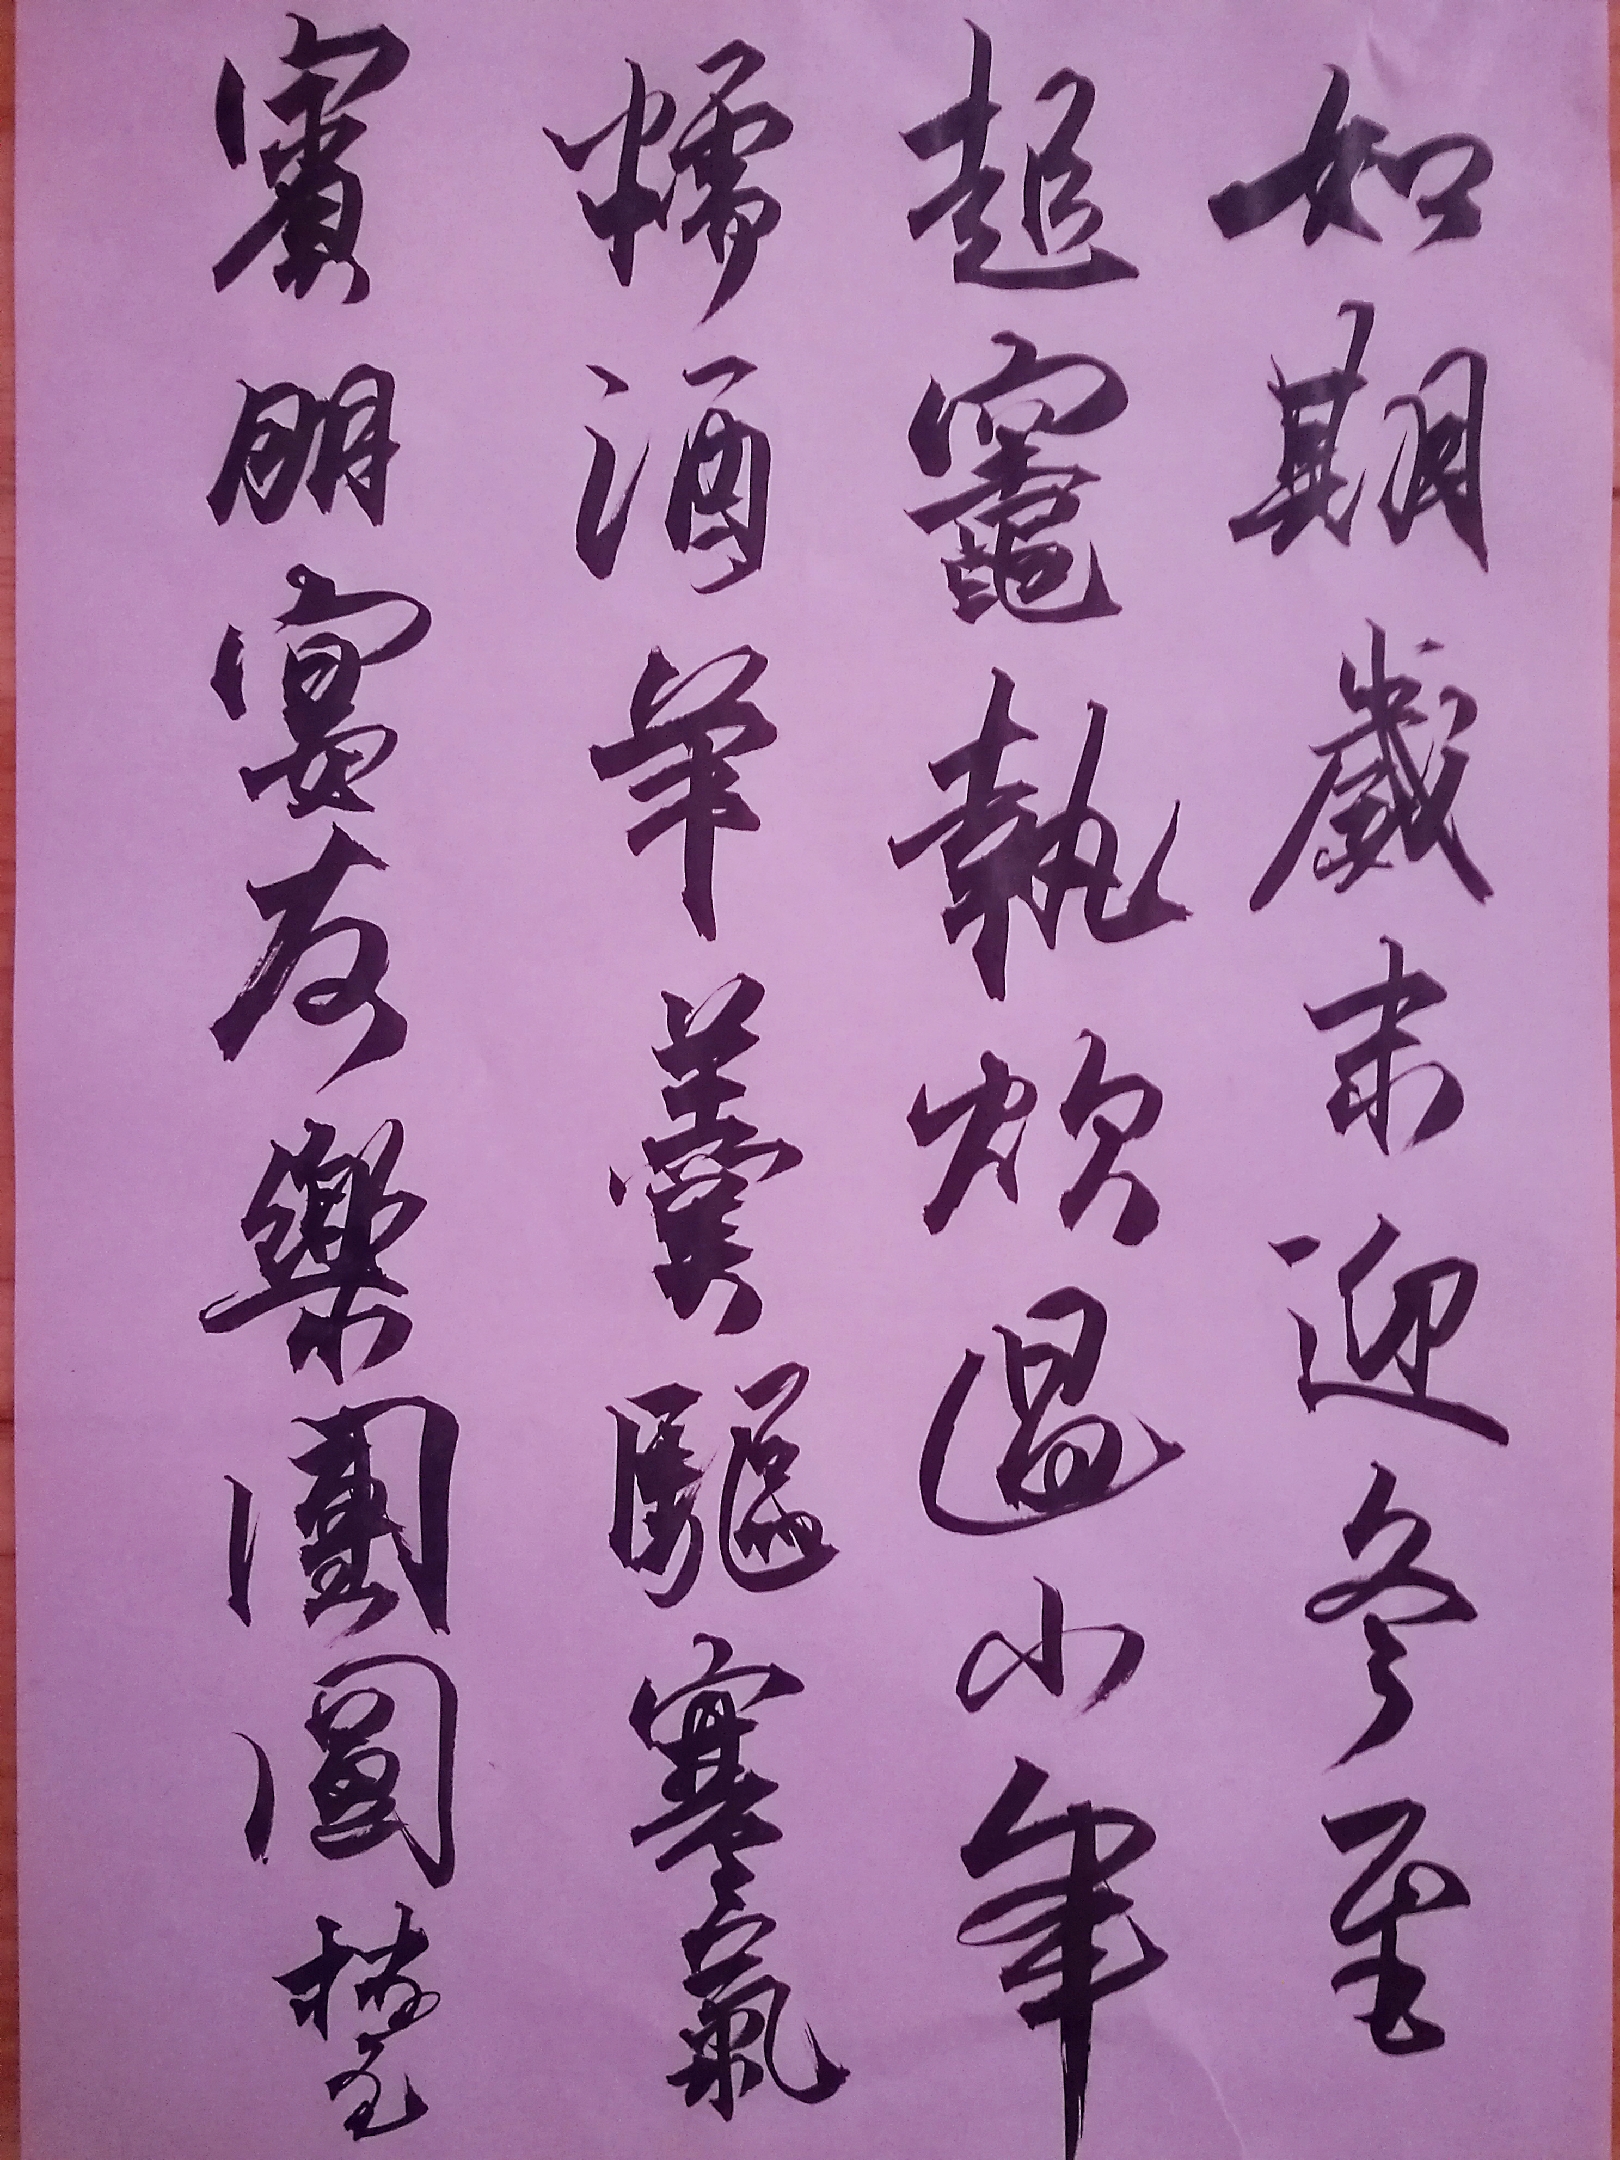 如期歲末迎冬至
起竈執炊過小年
糯酒羊羹驅寒氣
賓朋宴友樂團圓